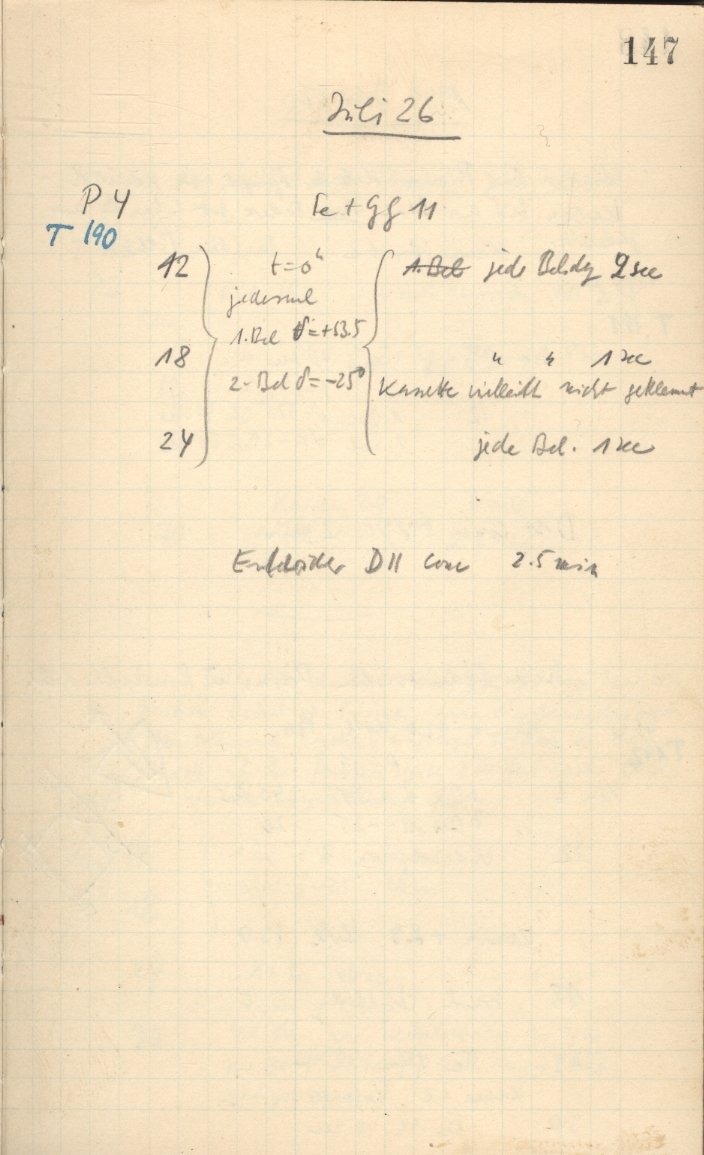 147
Juli 26
P 4
Fe + Gg 11
T 190
12 t=0h 1. Bel jede Beldg 2 sec
jedesmal
1. Bel δ=+53.5
18 " " 1 sec
2. Bel δ=-25° Kassette vielleicht nicht geklemmt
24 jede Bel. 1 sec
Entwickler D11 conc 2.5 min